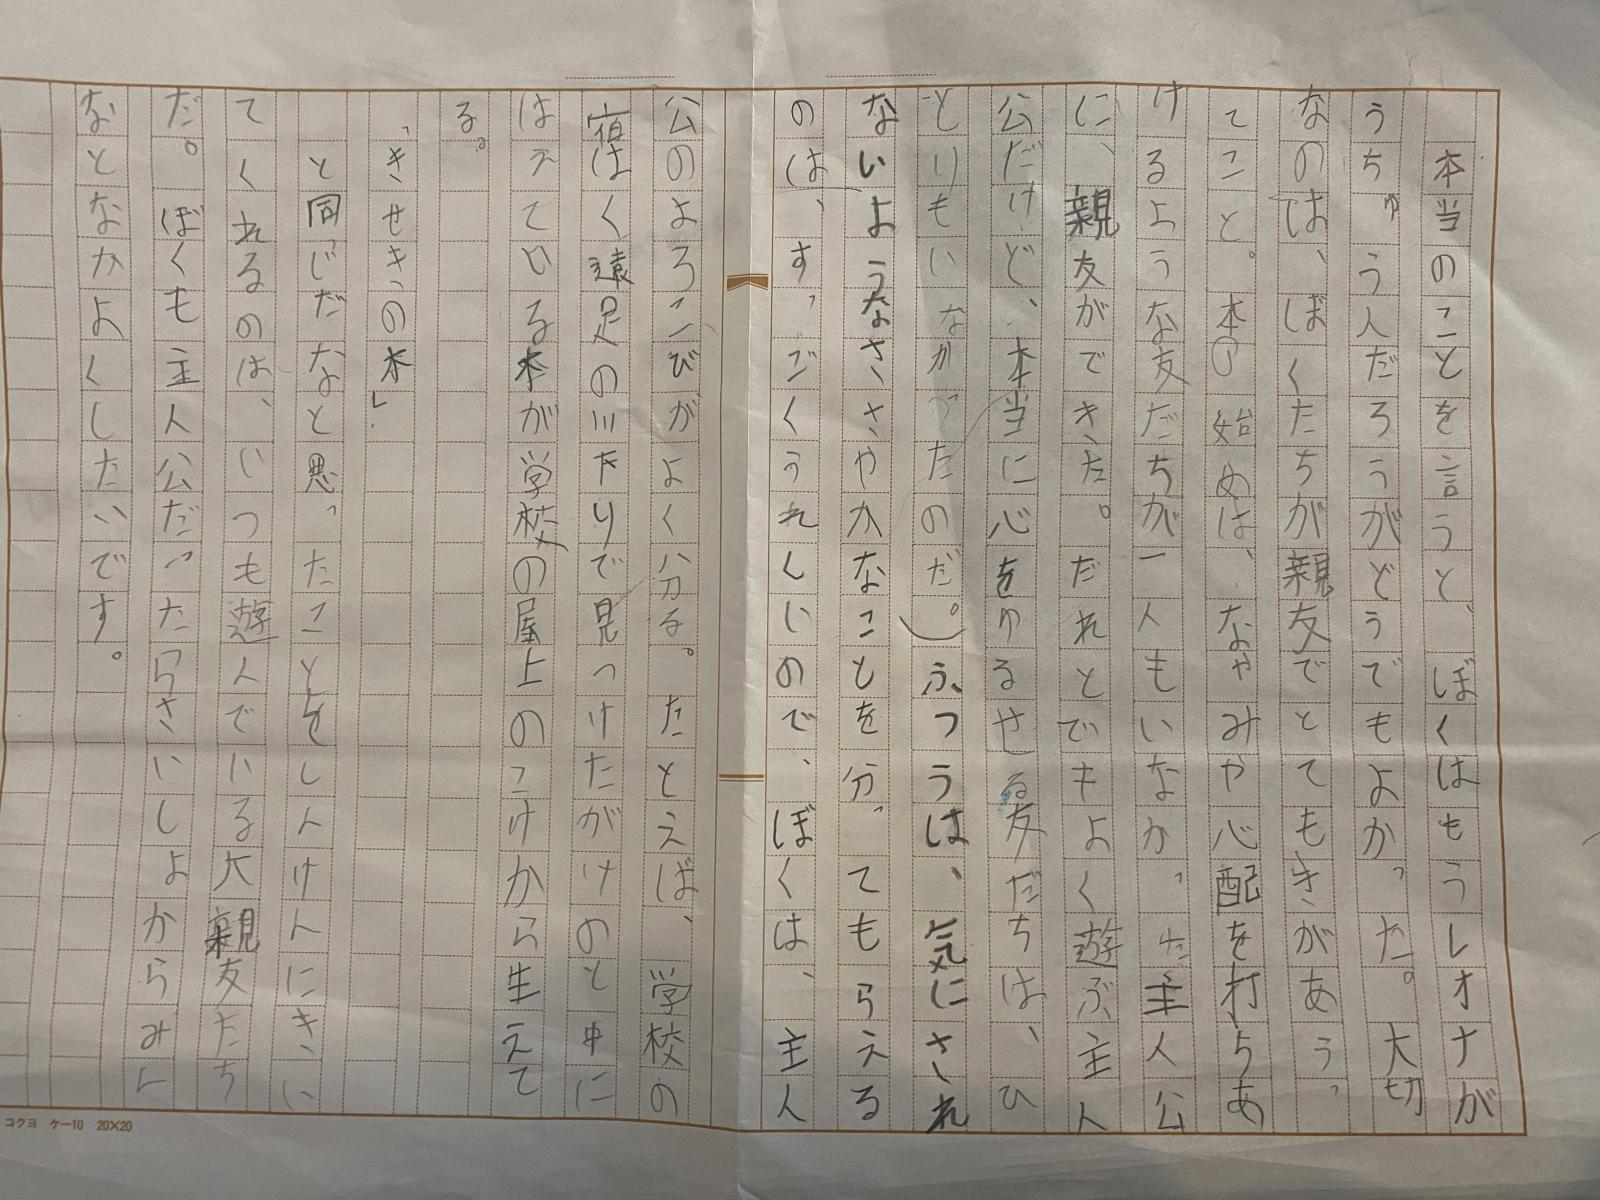 本当のことを言うと、ぼくはもうレオナが
うちゅう人だろうがどうでもよかった。大切
なのは、ぼくたちが親友でとてもきがあうっ
てこと。本の始めは、なやみや心配を打ちあ
けるような友だちが一人もいなかった主人公
に、親友ができた。だれとでもよく遊ぶ主人
公だけど、本当に心をゆるせる友だちは、ひ
とりもいなかったのだ。ふつうは、気にされ
ないようなささやかなことを分ってもらえる
のは、すっごくうれしいので、ぼくは、主人
公のよろこびがよく分る。たとえば、学校の
宿はく遠足の川下りで見つけたがけのと中に
はえている本が学校の屋上のこけから生えて
る。
「きせきの本」
と同じだなと思ったことをしんけんにきい
てくれるのは、いつも遊んでいる大親友たち
だ。ぼくも主人公だったらさいしょからみん
なとなかよくしたいです。
コクヨ ケー10 20×20